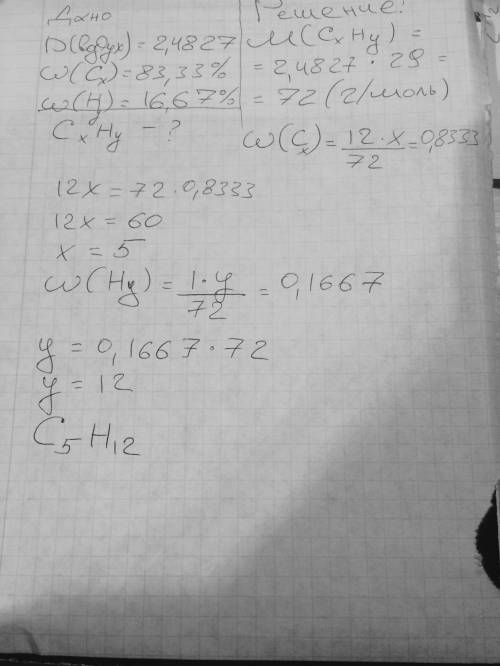 Дано
D(воздух) = 2,4827
ω(Cₓ) = 83,33%
ω(H) = 16,67%
CₓHy – ?
Решение:
M(CₓHy) =
= 2,4827 · 29 =
= 72 (г/моль)
ω(Cₓ) = 12·x / 72 = 0,8333
12x = 72 · 0,8333
12x = 60
x = 5
ω(Hy) = 1·y / 72 = 0,1667
y = 0,1667 · 72
y = 12
C₅H₁₂